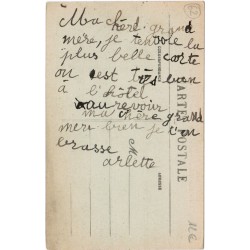 Ma chère grand
mère, je tenvoie la
plus belle carte
on est très bien
à l'hôtel
au revoir
ma chère grand
mere bien je t'en
brasse
arlette
CARTE POSTALE